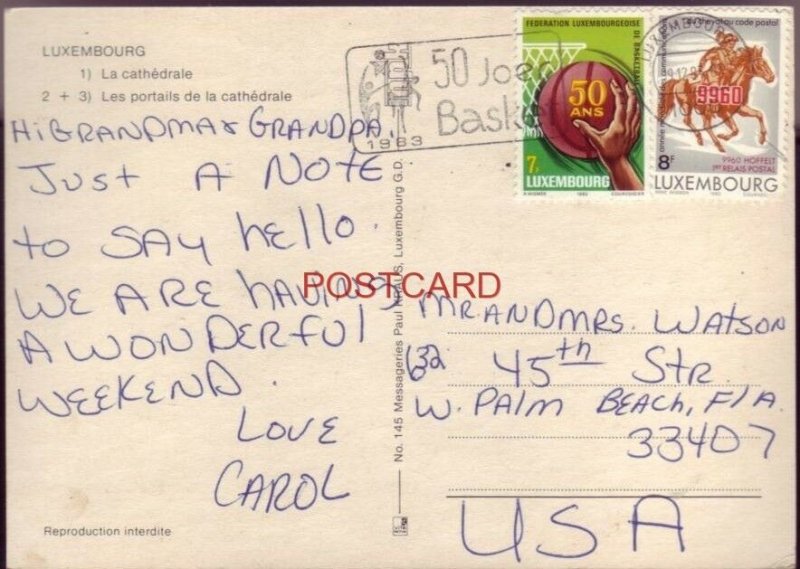 LUXEMBOURG
1) La cathédrale
2 + 3) Les portails de la cathédrale
Hi GRANDMA & GRANDPA,
JUST A NOTE
to SAY hello.
WE ARE HAVING
A WONDERFUL
WEEKEND.
LOVE
CAROL
Reproduction interdite
No. 145 Messageries Paul KRAUS, Luxembourg G.D.
50 Joer
Bask
1983
FEDERATION LUXEMBOURGEOISE
DE BASKETBALL
50
ANS
7F
LUXEMBOURG
1983
COURVOISIER
LUXEMBOURG
du cheval au code postal
9960
9960 HOFFELT
1er RELAIS POSTAL
8F
LUXEMBOURG
1983
POSTCARD
MR. AND MRS. WATSON
632 45th STR.
W. PALM BEACH, FlA.
33407
USA